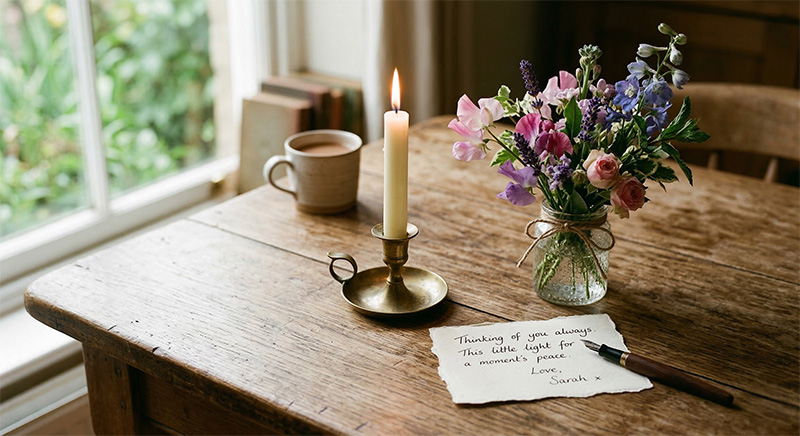 Thinking of you always.
This little light for
a moment's peace.
Love,
Sarah x